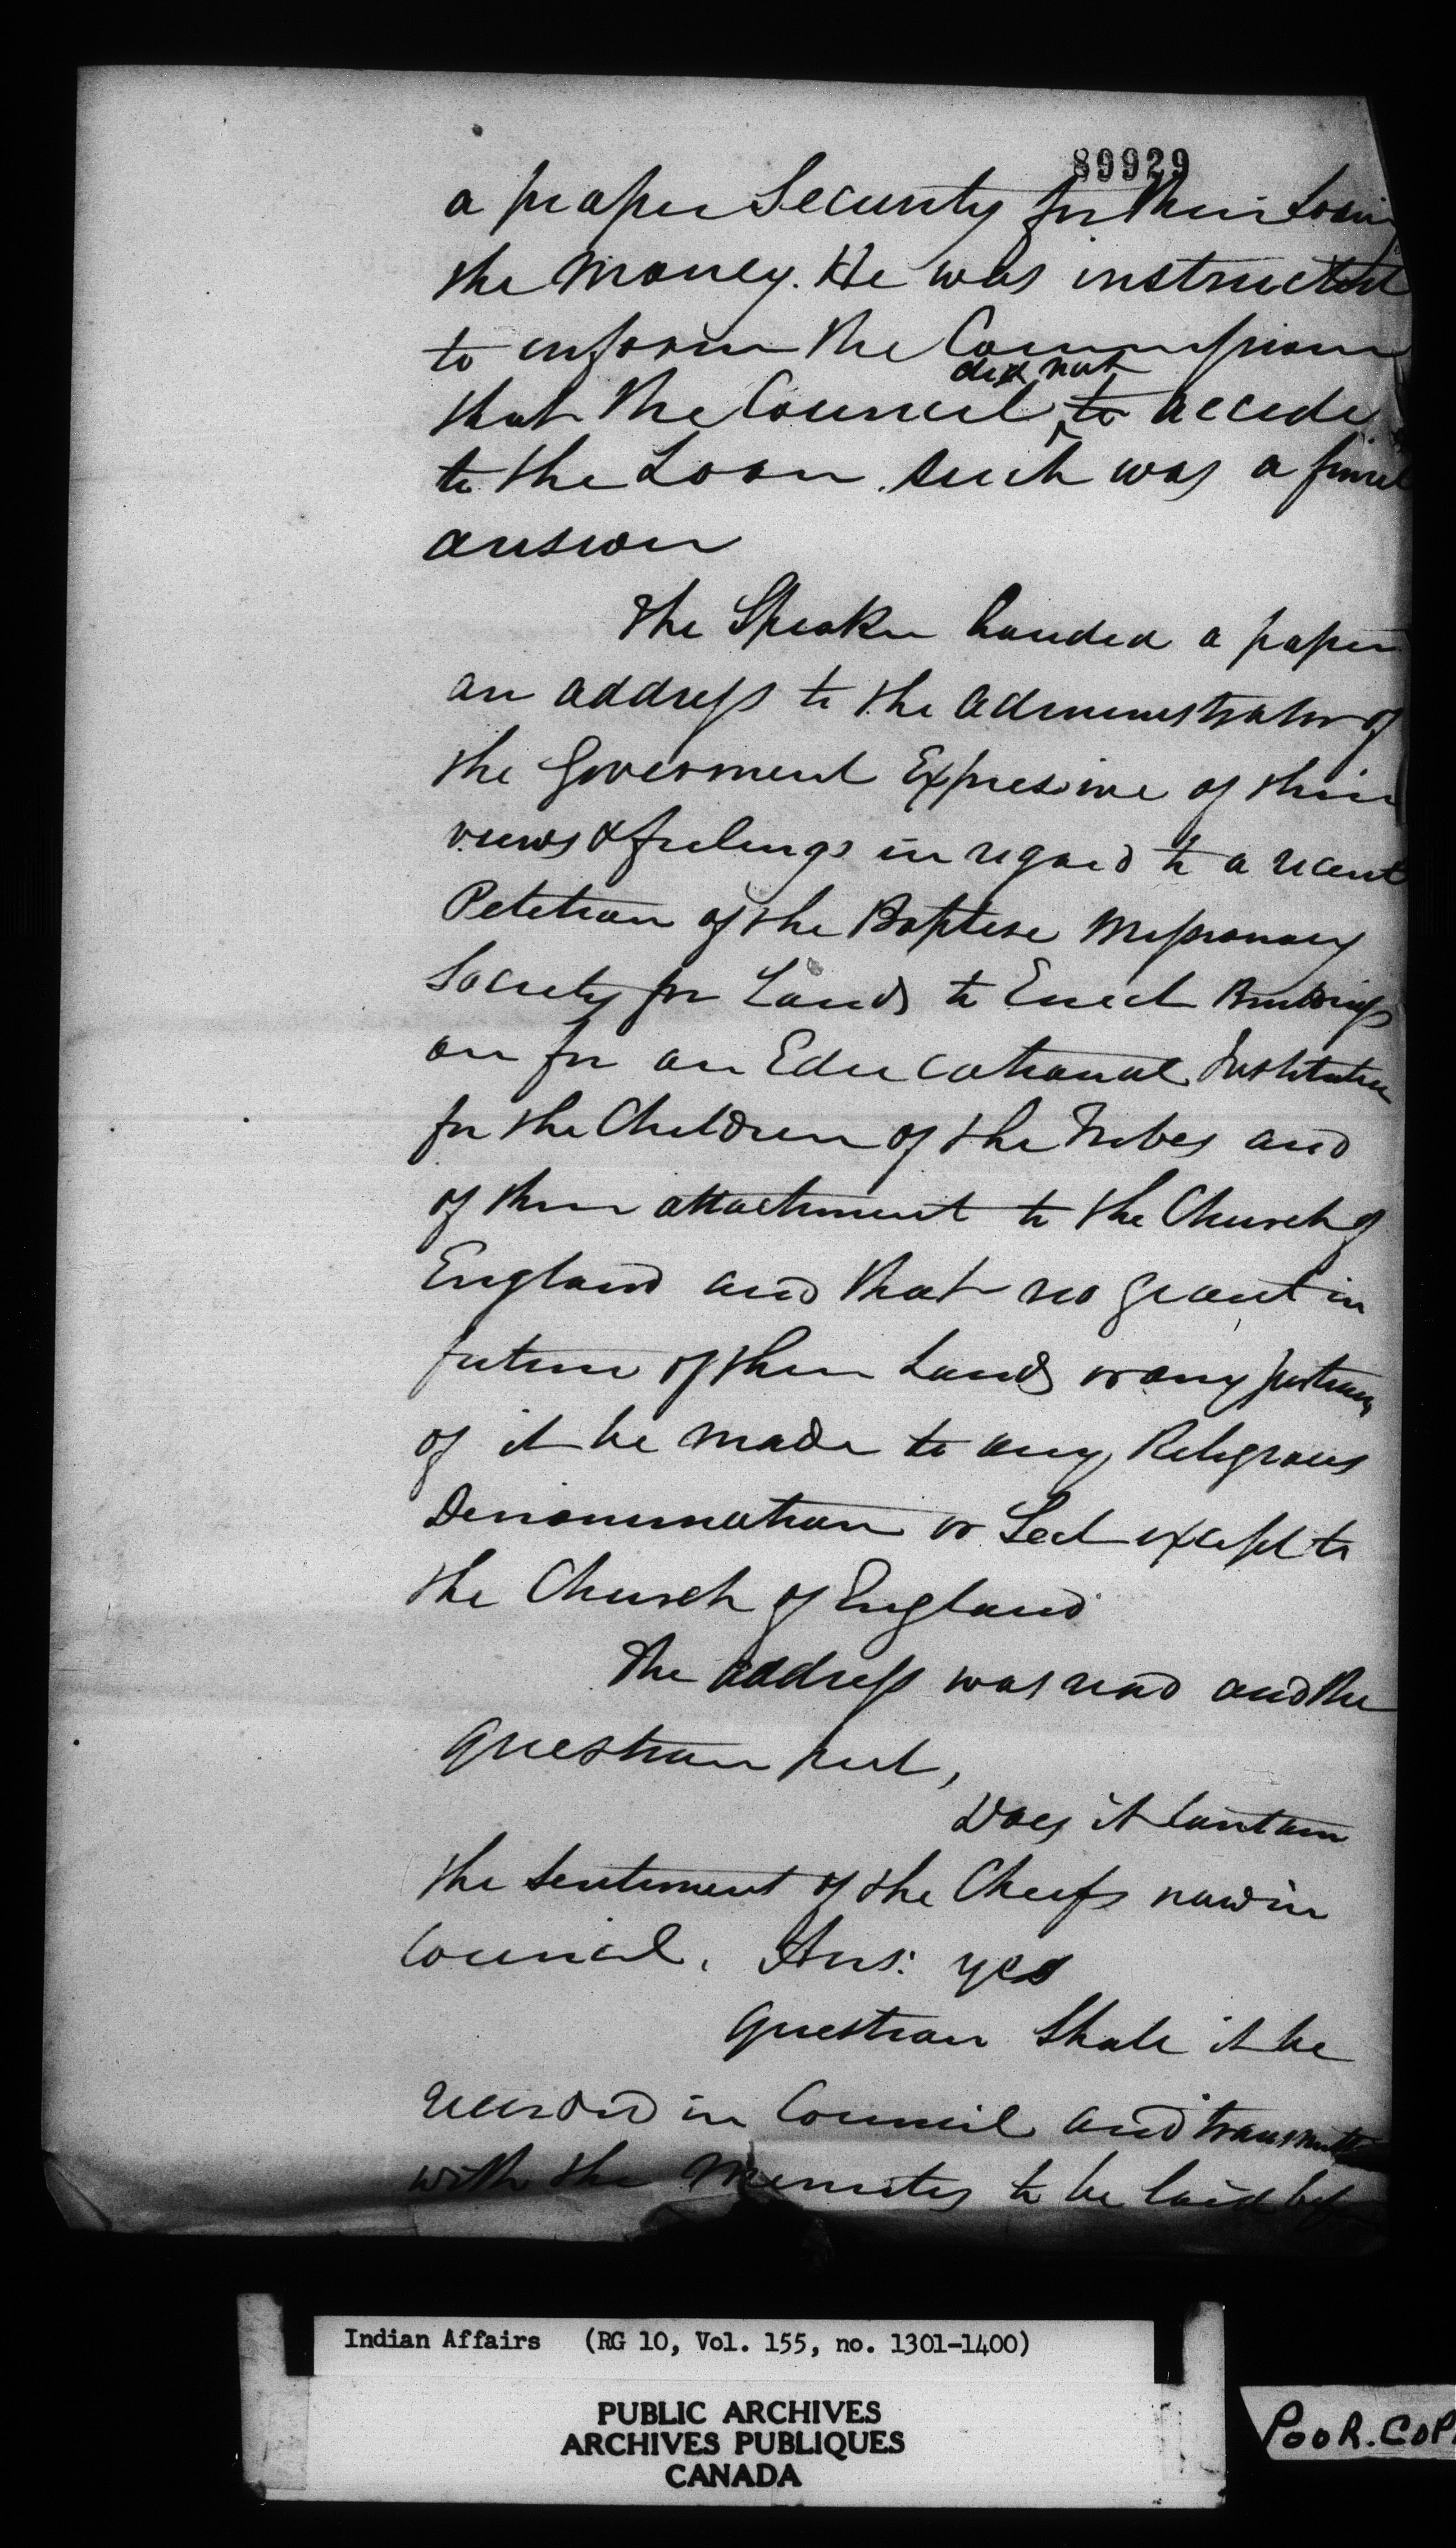 89929
a proper Security for their Loaning
the Money. He was instructed
to inform the Commissioner
did not
that the Council to accede
to the Loan. such was a final
answer
The Speaker handed a paper
an address to the Administrator of
the Goverment Expressive of their
views & feelings in regard to a recent
Petition of the Baptist Missionary
Society for Lands to Erect Buildings
on for an Educational Institution
for the Children of the Tribes and
of their attachment to the Church of
England and that no grant in
future of their Lands or any portion
of it be made to any Religious
Denomination or Sect except to
the Church of England
The address was read and the
question put,
Does it Contain
the Sentiment of the Chiefs now in
Council. Ans: yes
Question Shall it be
recorded in Council and transmitted
with the Minutes to be laid before
Indian Affairs (RG 10, Vol. 155, no. 1301-1400)
PUBLIC ARCHIVES
ARCHIVES PUBLIQUES
CANADA
POOR.COP